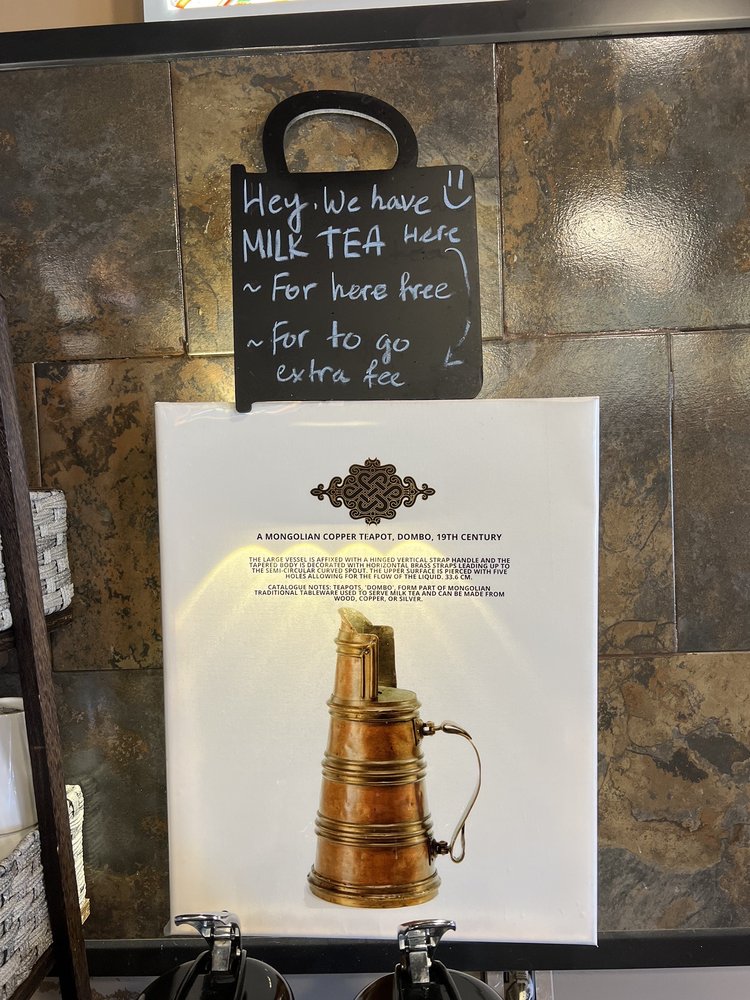 Hey. We have
MILK TEA Here
~ For here free
~ For to go
extra fee
A MONGOLIAN COPPER TEAPOT, DOMBO, 19TH CENTURY
THE LARGE VESSEL IS AFFIXED WITH A HINGED VERTICAL STRAP HANDLE AND THE
TAPERED BODY IS DECORATED WITH HORIZONTAL BRASS STRAPS LEADING UP TO
THE SEMI-CIRCULAR CURVED SPOUT. THE UPPER SURFACE IS PIERCED WITH FIVE
HOLES ALLOWING FOR THE FLOW OF THE LIQUID. 33.6 CM.
CATALOGUE NOTES: TEAPOTS, 'DOMBO', FORM PART OF MONGOLIAN
TRADITIONAL TABLEWARE USED TO SERVE MILK TEA AND CAN BE MADE FROM
WOOD, COPPER, OR SILVER.